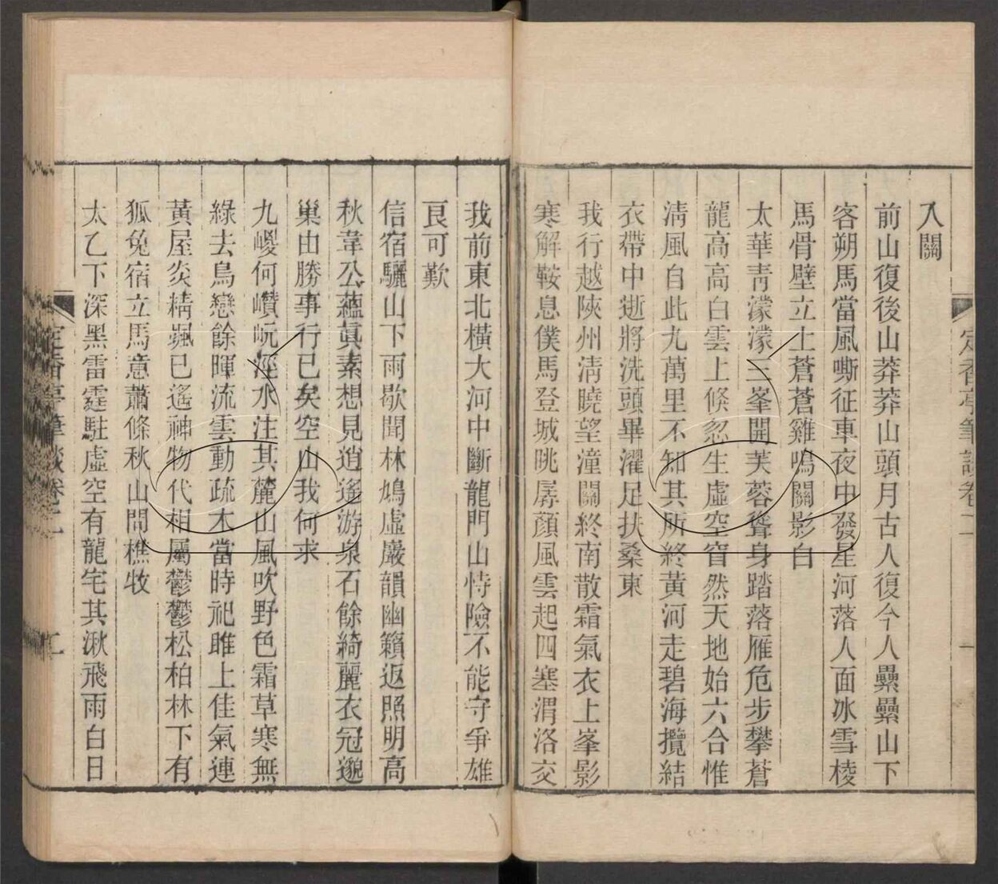 入關
前山復後山莽莽山頭月古人復今人纍纍山下
客朔馬當風嘶征車夜中發星河落人面冰雪棱
馬骨壁立上蒼蒼雞鳴關影白
太華青濛濛三峯開芙蓉聳身踏落雁危步攀蒼
龍高高白雲上倏忽生虛空窅然天地始六合惟
淸風自此九萬里不知其所終黃河走碧海攬結
衣帶中逝將洗頭畢濯足扶桑東
我行越陜州清曉望潼關終南散霜氣衣上峯影
寒解鞍息僕馬登城眺孱顏風雲起四塞渭洛交
定香亭筆談卷二
一
我前東北橫大河中斷龍門山恃險不能守爭雄
良可歎
信宿驪山下雨歇聞林鳩虛巖韻幽籟返照明高
秋韋公蘊眞素想見逍遙游泉石餘綺麗衣冠邈
巢由勝事行已矣空山我何求
九嵕何巑岏涇水注其麓山風吹野色霜草寒無
綠去鳥戀餘暉流雲動疏木當時祀雎上佳氣連
黃屋炎精颯已遙神物代相屬鬱鬱松柏林下有
狐兔宿立馬意蕭條秋山問樵牧
太乙下深黑雷霆駐虛空有龍宅其湫飛雨白日
定香亭筆談卷二